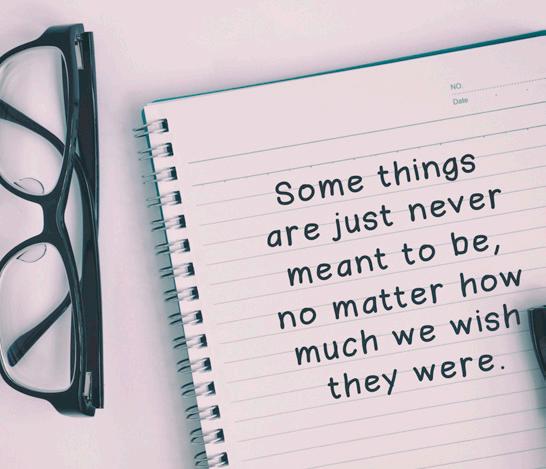 NO.
Date
Some things
are just never
meant to be,
no matter how
much we wish
they were.